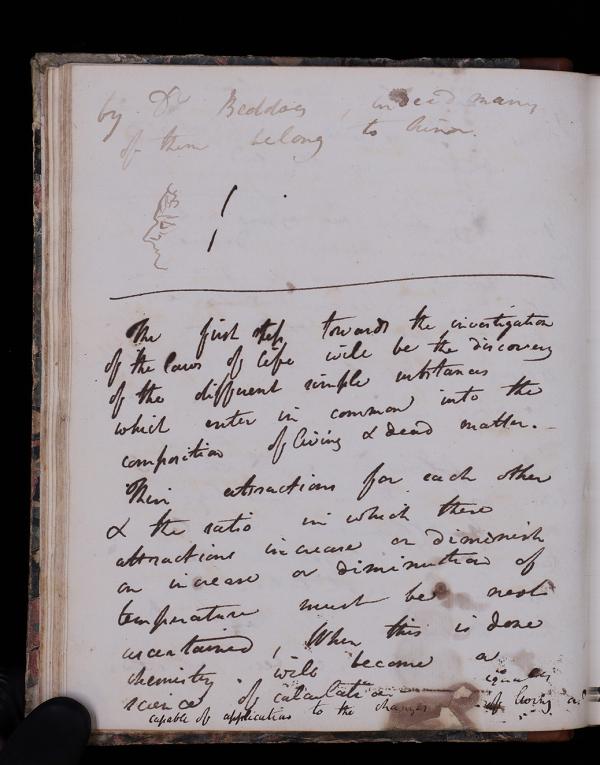 by Dr Beddoes, indeed many
of them belong to him.
The first step towards the investigation
of the laws of life will be the discovery
of the different simple substances
which enter in common into the
composition of living & dead matter.
Their attractions for each other
& the ratio in which these
attractions increase or diminish
on increase or diminution of
temperature must be next
ascertained, When this is done
chemistry will become a
science of calculation equally
capable of application to the changes of living